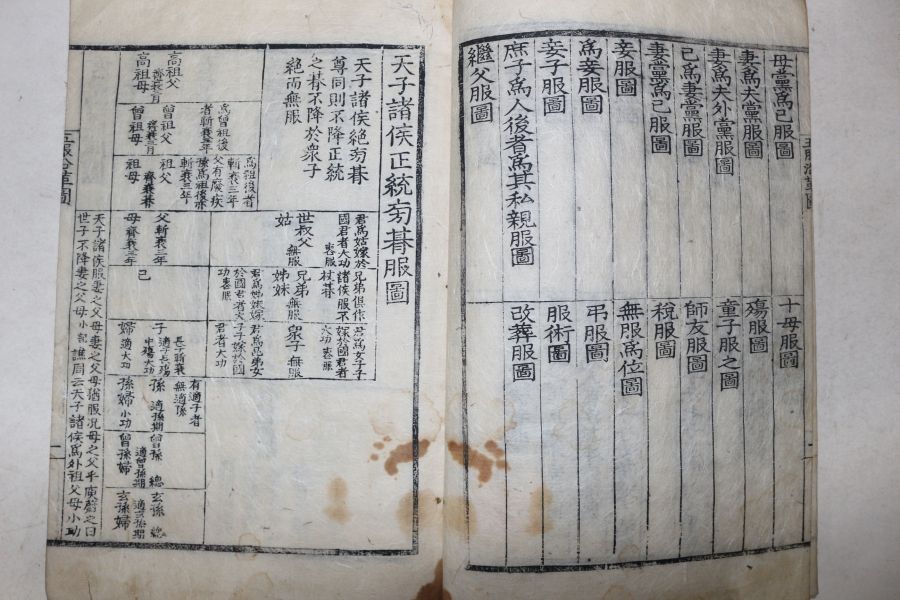 母黨爲己服圖
妻爲夫黨服圖
妻爲夫外黨服圖
己爲妻黨服圖
妻黨爲己服圖
妾服圖
爲妾服圖
妾子服圖
庶子爲人後者爲其私親服圖
繼父服圖
十母服圖
殤服圖
童子服之圖
師友服圖
稅服圖
無服爲位圖
弔服圖
服術圖
改葬服圖
天子諸侯正統旁朞服圖
天子諸侯絶旁朞
尊同則不降正統
之朞不降於衆子
絶而無服
高祖父
齊衰三月
高祖母
爲曾祖後
者斬衰三年
曾祖父
齊衰三月
曾祖母
爲祖後者
斬衰三年
父有廢疾
斬衰三年
祖父
齊衰朞
祖母
君爲姑嫁於
國君者大功
世叔父
無服
姑
父斬衰三年
母齊衰三年
兄弟
無服
姊妹
己
衆子
無服
長子斬衰
子
適子長殤
中殤大功
婦
適大功
有適子者
無適孫
孫
適孫期
孫婦小功
曾孫
總
適曾孫期
曾孫婦
玄孫
總
適玄孫期
玄孫婦
天子諸侯服妻之父母妻之父母猶服况母之父乎庾蔚之曰
世子不降妻之父母小記譙周云天子諸侯爲外祖父母小功